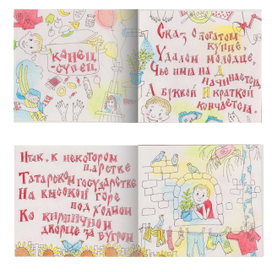 КОНЕЦ-
Сказ о богатом
купце,
Удалом молодце,
Чьё имя на
начинается,
А буквой И краткой
кончается.
Итак, в некотором
царстве
Татарском государстве
На высокой горе
под холмом
Ко кирпичном
дворце за бугром